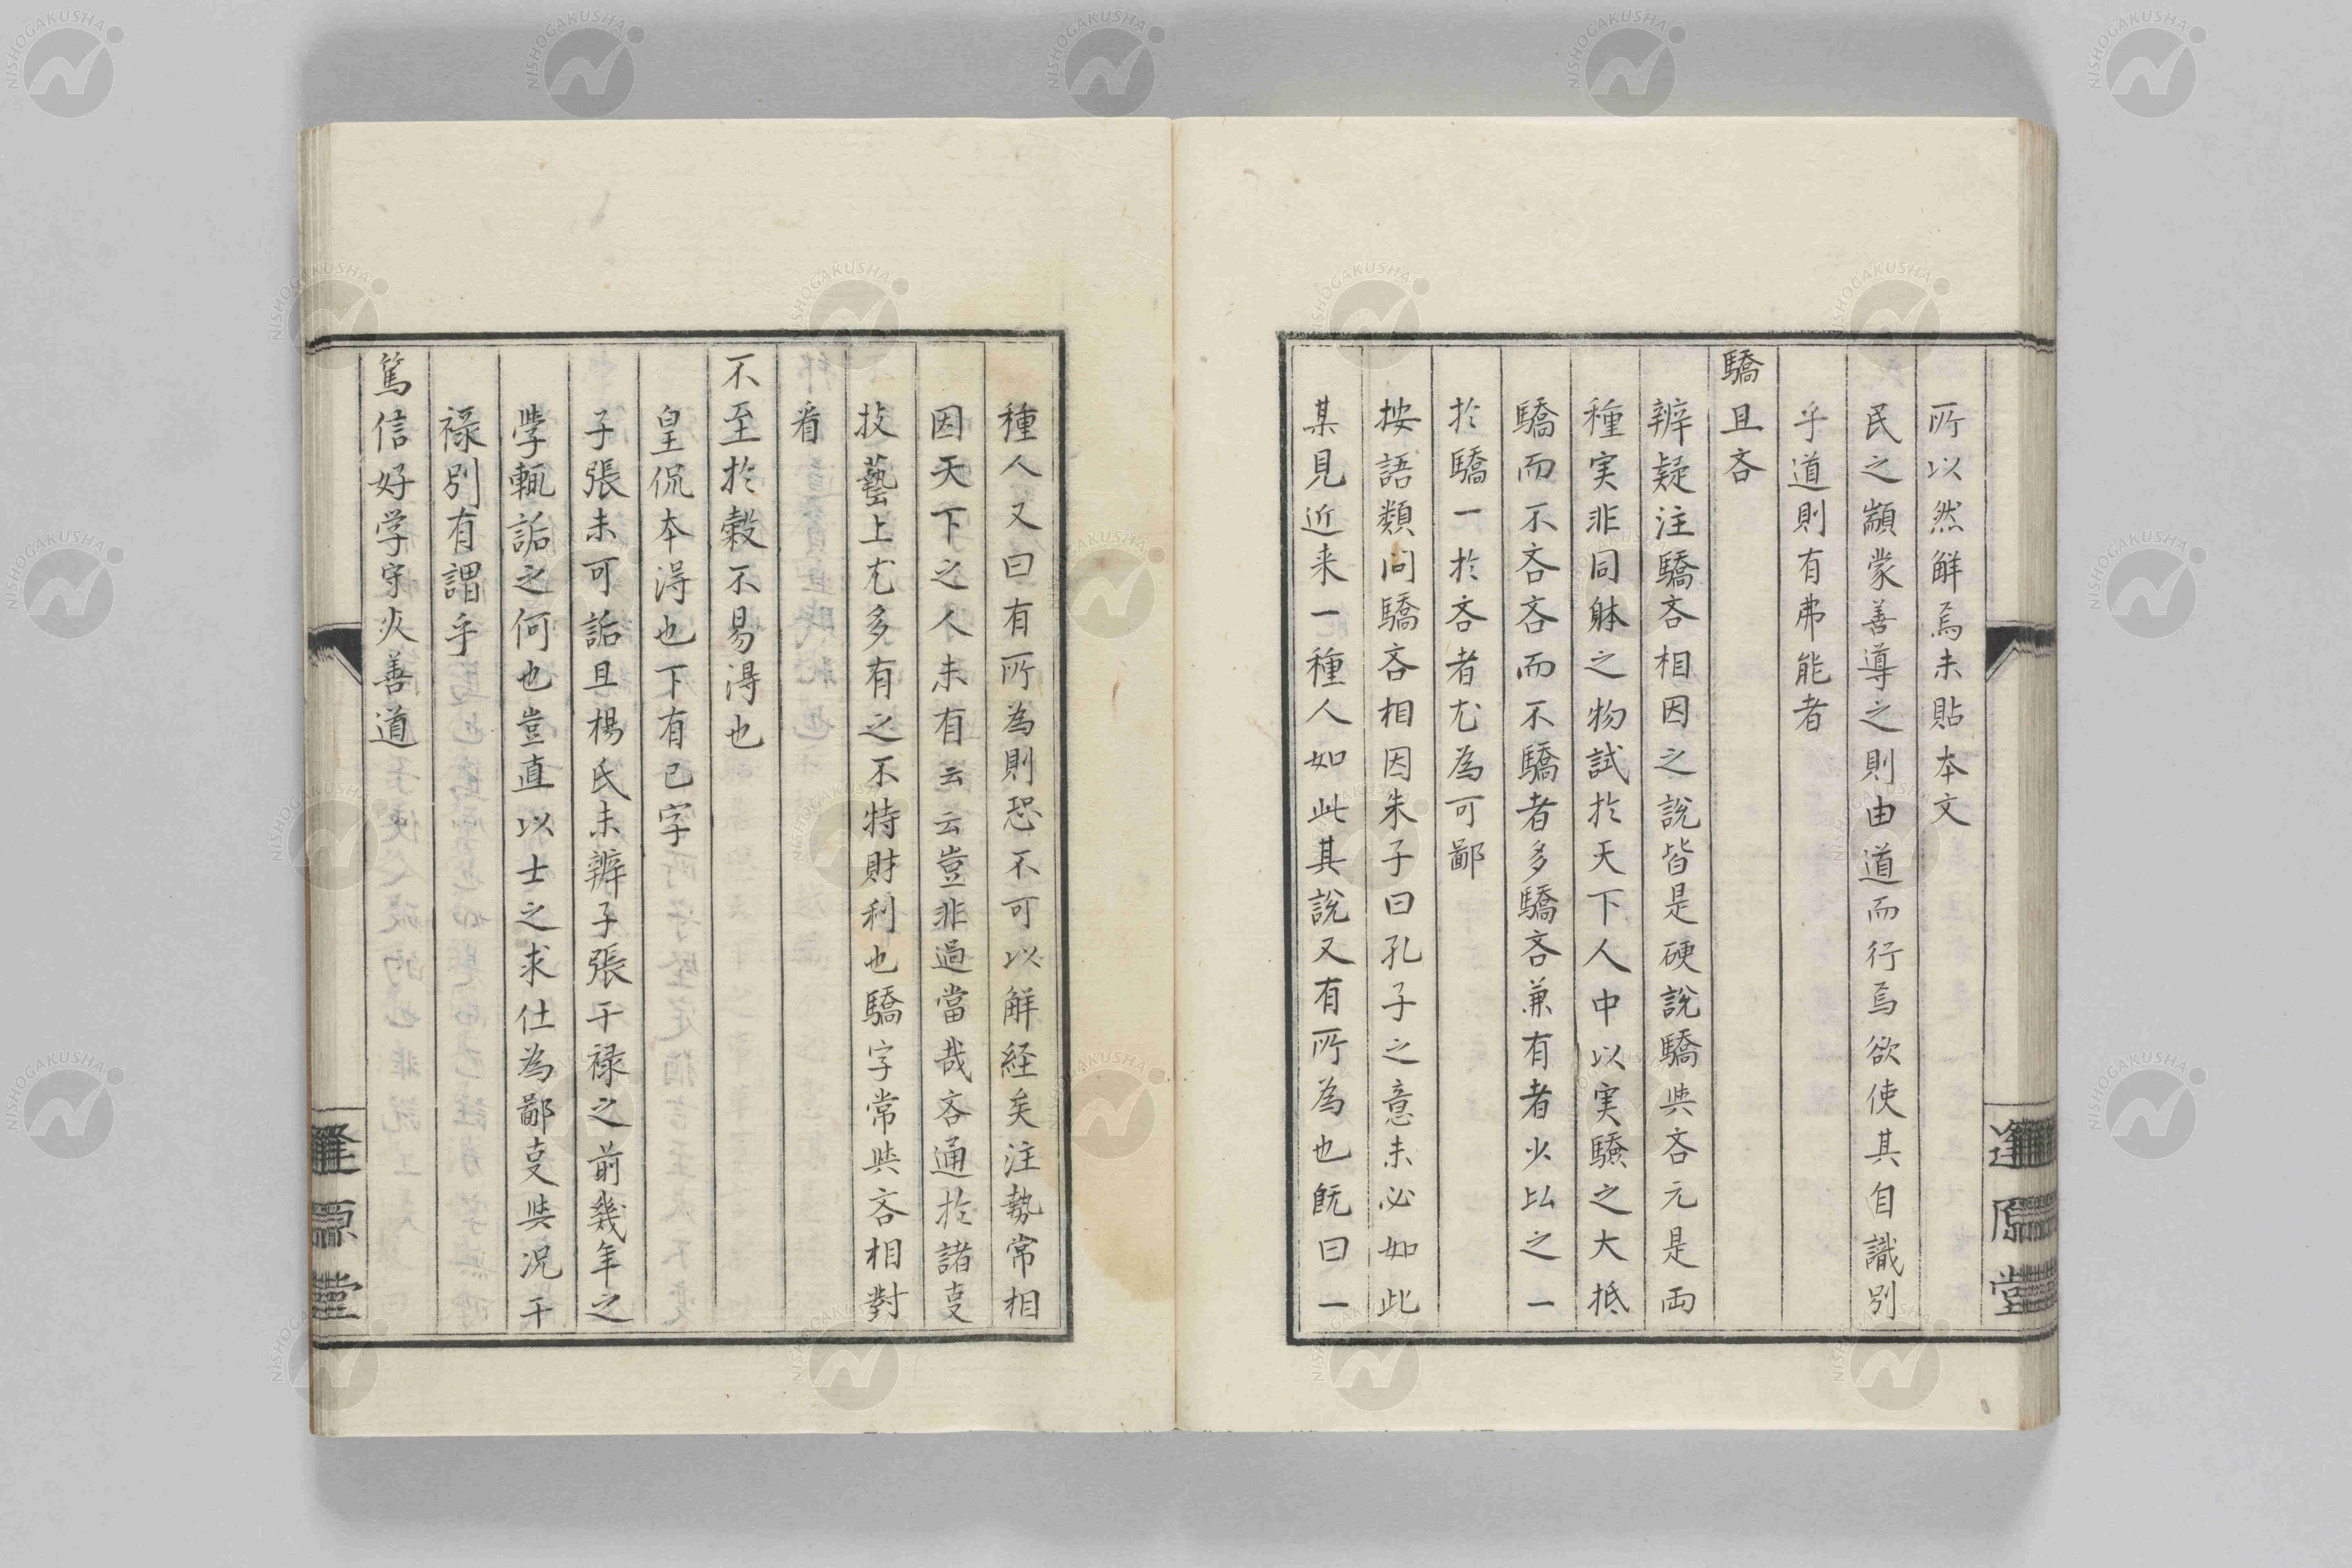 所以然解焉未貼本文
民之顓蒙善導之則由道而行焉欲使其自識別
乎道則有弗能者
驕且吝
辨疑注驕吝相因之說皆是硬說驕與吝元是両
種実非同躰之物試於天下人中以実驗之大抵
驕而不吝吝而不驕者多驕吝兼有者少比之一
於驕一於吝者尤為可鄙
按語類問驕吝相因朱子曰孔子之意未必如此
某見近来一種人如此其說又有所為也既曰一
種人又曰有所為則恐不可以解経矣注勢常相
因天下之人未有云云豈非過當哉吝通於諸叓
技藝上尤多有之不特財利也驕字常與吝相對
看
不至於穀不易得也
皇侃本得也下有已字
子張未可詬且楊氏未辨子張干禄之前幾年之
學輒詬之何也豈直以士之求仕為鄙叓與況干
禄別有謂乎
篤信好学守死善道
逢原堂
逢原堂
NISHOGAKUSHA